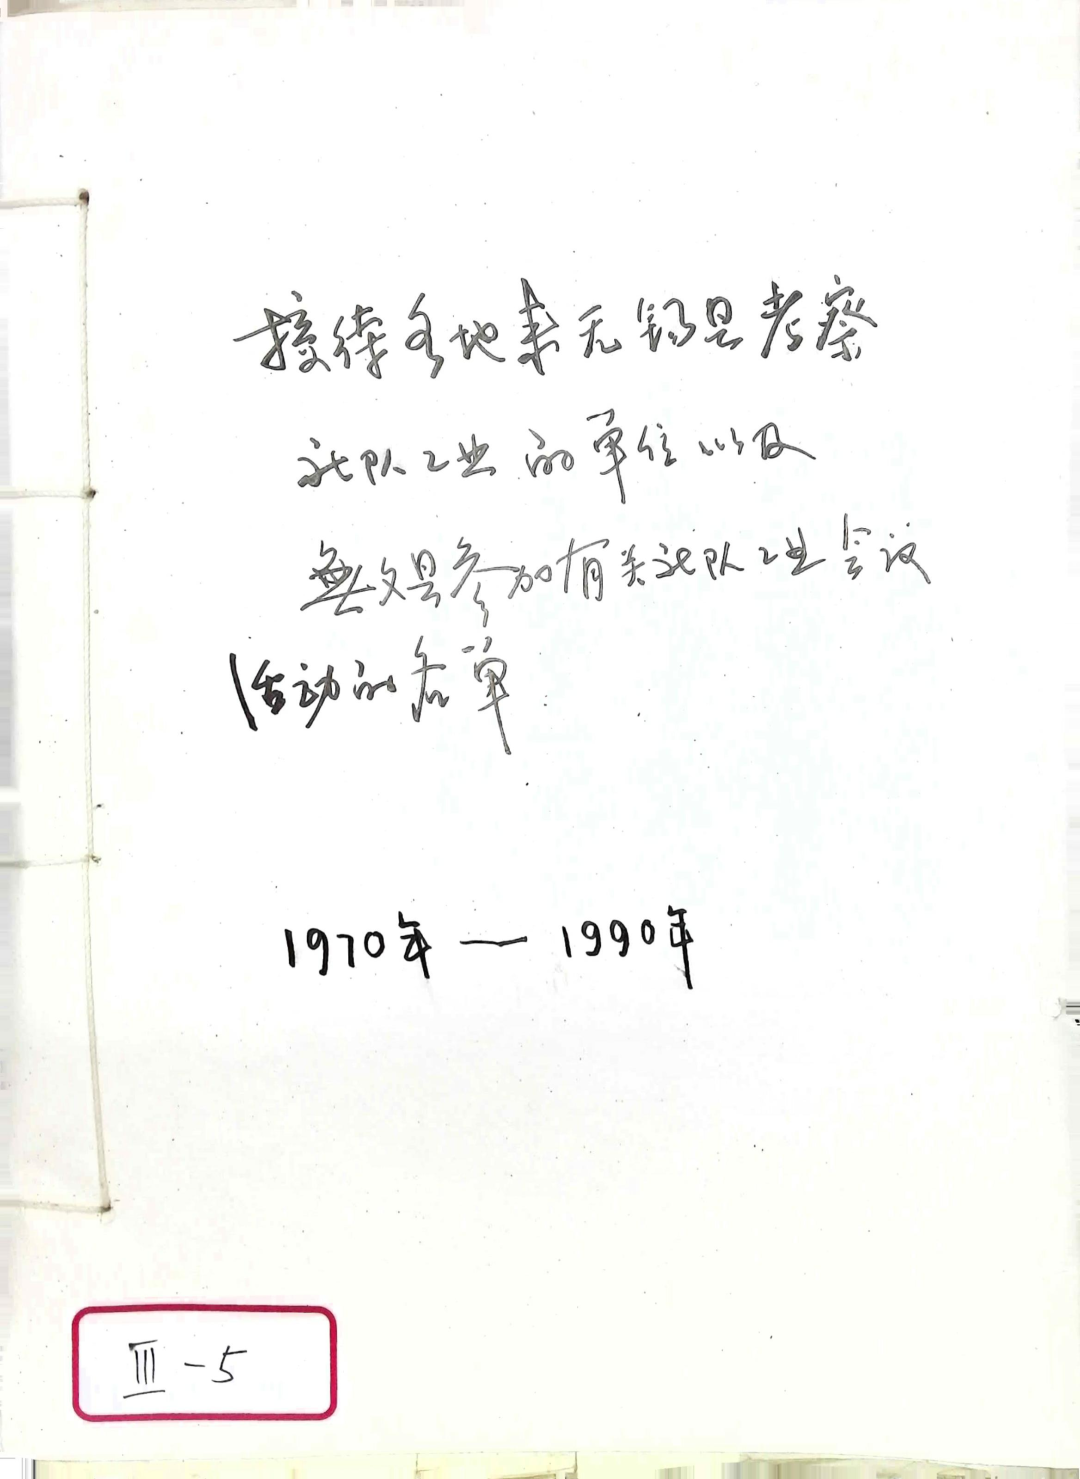 接待各地来无锡县考察
社队工业的单位以及
無父县参加有关社队工业会议
活动的名单
1970年 — 1990年
III -5